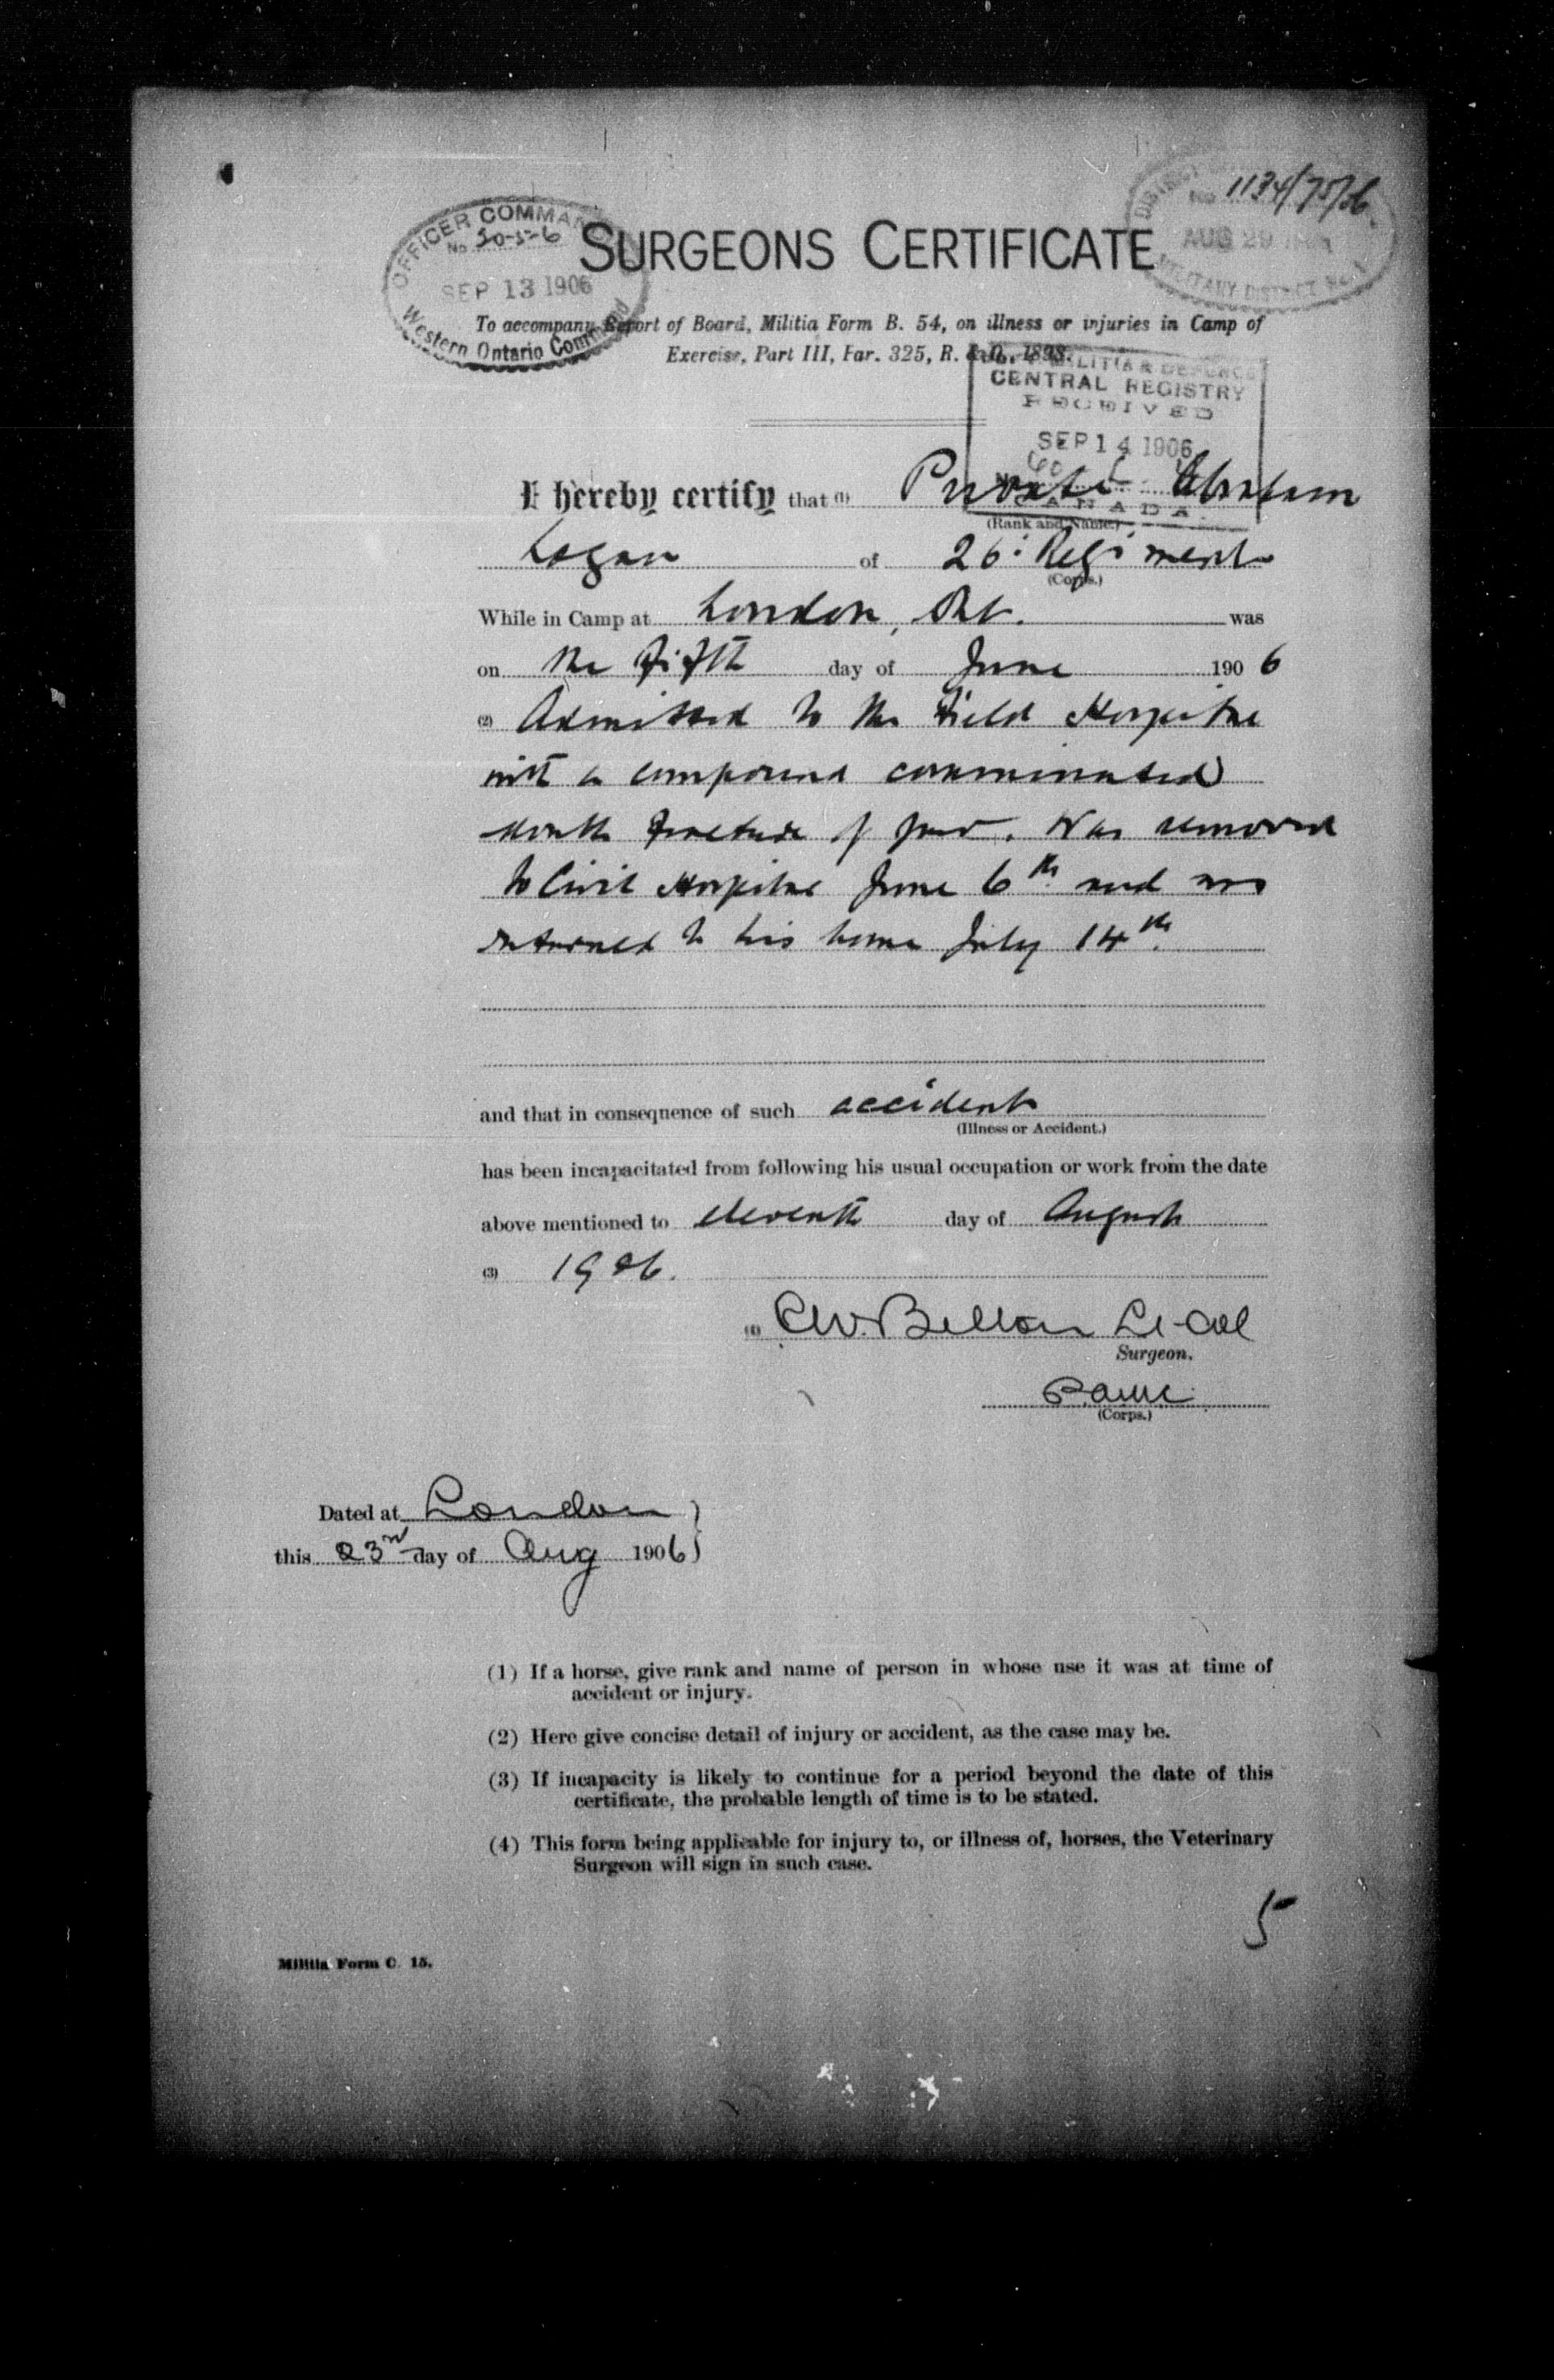 1134/75/06
OFFICER COMMAN
No. 50-5-6
SEP 13 1906
Western Ontario Command
AUG 29
MILITARY DISTRICT No. 1
SURGEONS CERTIFICATE
To accompany Report of Board, Militia Form B. 54, on illness or injuries in Camp of
Exercise, Part III, Par. 325, R. & O., 1898.
MILITIA & DEFENCE
CENTRAL REGISTRY
RECEIVED
SEP 14 1906
CANADA
I hereby certify that (1) Private Abraham
(Rank and Name.)
Logan of 26: Regiment
(Corps.)
While in Camp at London, Ont. was
on the fifth day of June 1906
(2) Admitted to the Field Hospital
with a compound comminuted
fracture of jaw. Was removed
to Civil Hospital June 6th and was
returned to his home July 14th.
and that in consequence of such accident
(Illness or Accident.)
has been incapacitated from following his usual occupation or work from the date
above mentioned to eleventh day of August
(3) 1906.
(4) C.W. Belton Lt-Col
Surgeon.
P.A.M.C.
(Corps.)
Dated at London
this 23rd day of Aug 1906
(1) If a horse, give rank and name of person in whose use it was at time of
accident or injury.
(2) Here give concise detail of injury or accident, as the case may be.
(3) If incapacity is likely to continue for a period beyond the date of this
certificate, the probable length of time is to be stated.
(4) This form being applicable for injury to, or illness of, horses, the Veterinary
Surgeon will sign in such case.
5
Militia Form C. 15.